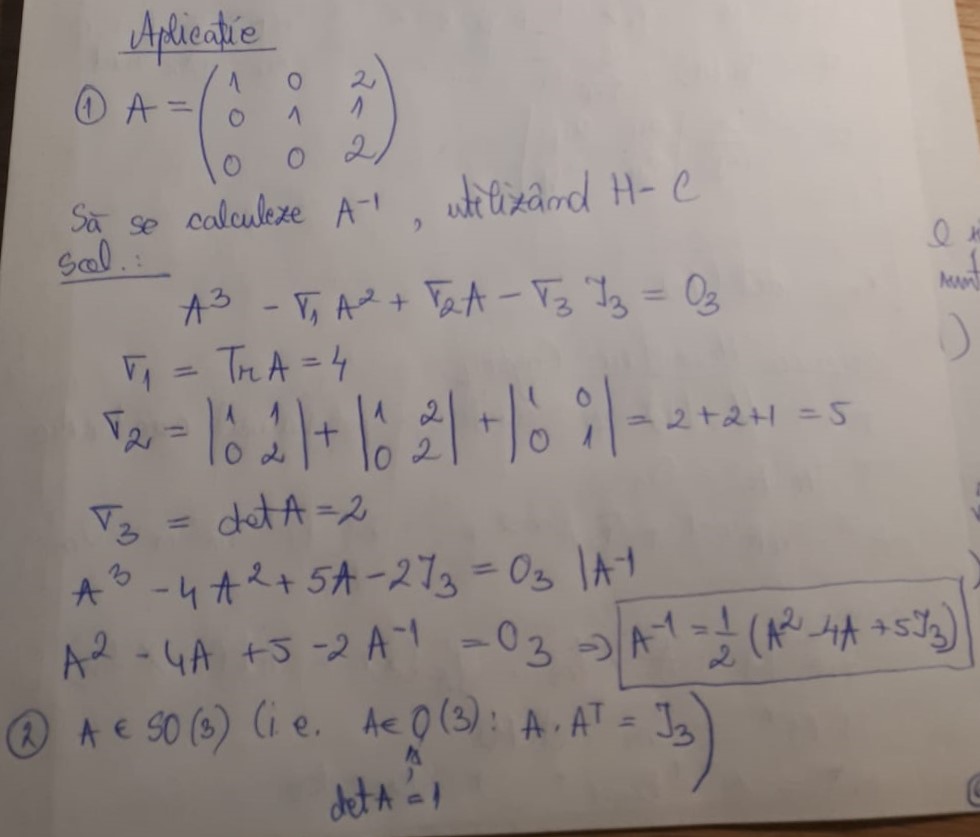 Aplicație
① A = (1 0 2
0 1 1
0 0 2)
Să se calculeze A⁻¹, utilizând H-C
Sol.:
A³ - σ₁A² + σ₂A - σ₃ I₃ = O₃
σ₁ = Tr A = 4
σ₂ = |1 1; 0 2| + |1 2; 0 2| + |1 0; 0 1| = 2+2+1 = 5
σ₃ = det A = 2
A³ - 4A² + 5A - 2I₃ = O₃ |A⁻¹
A² - 4A + 5 - 2A⁻¹ = O₃ ⇒ A⁻¹ = 1/2 (A² - 4A + 5I₃)
② A ∈ SO(3) (i.e. A ∈ O(3): A·Aᵀ = I₃)
det A = 1